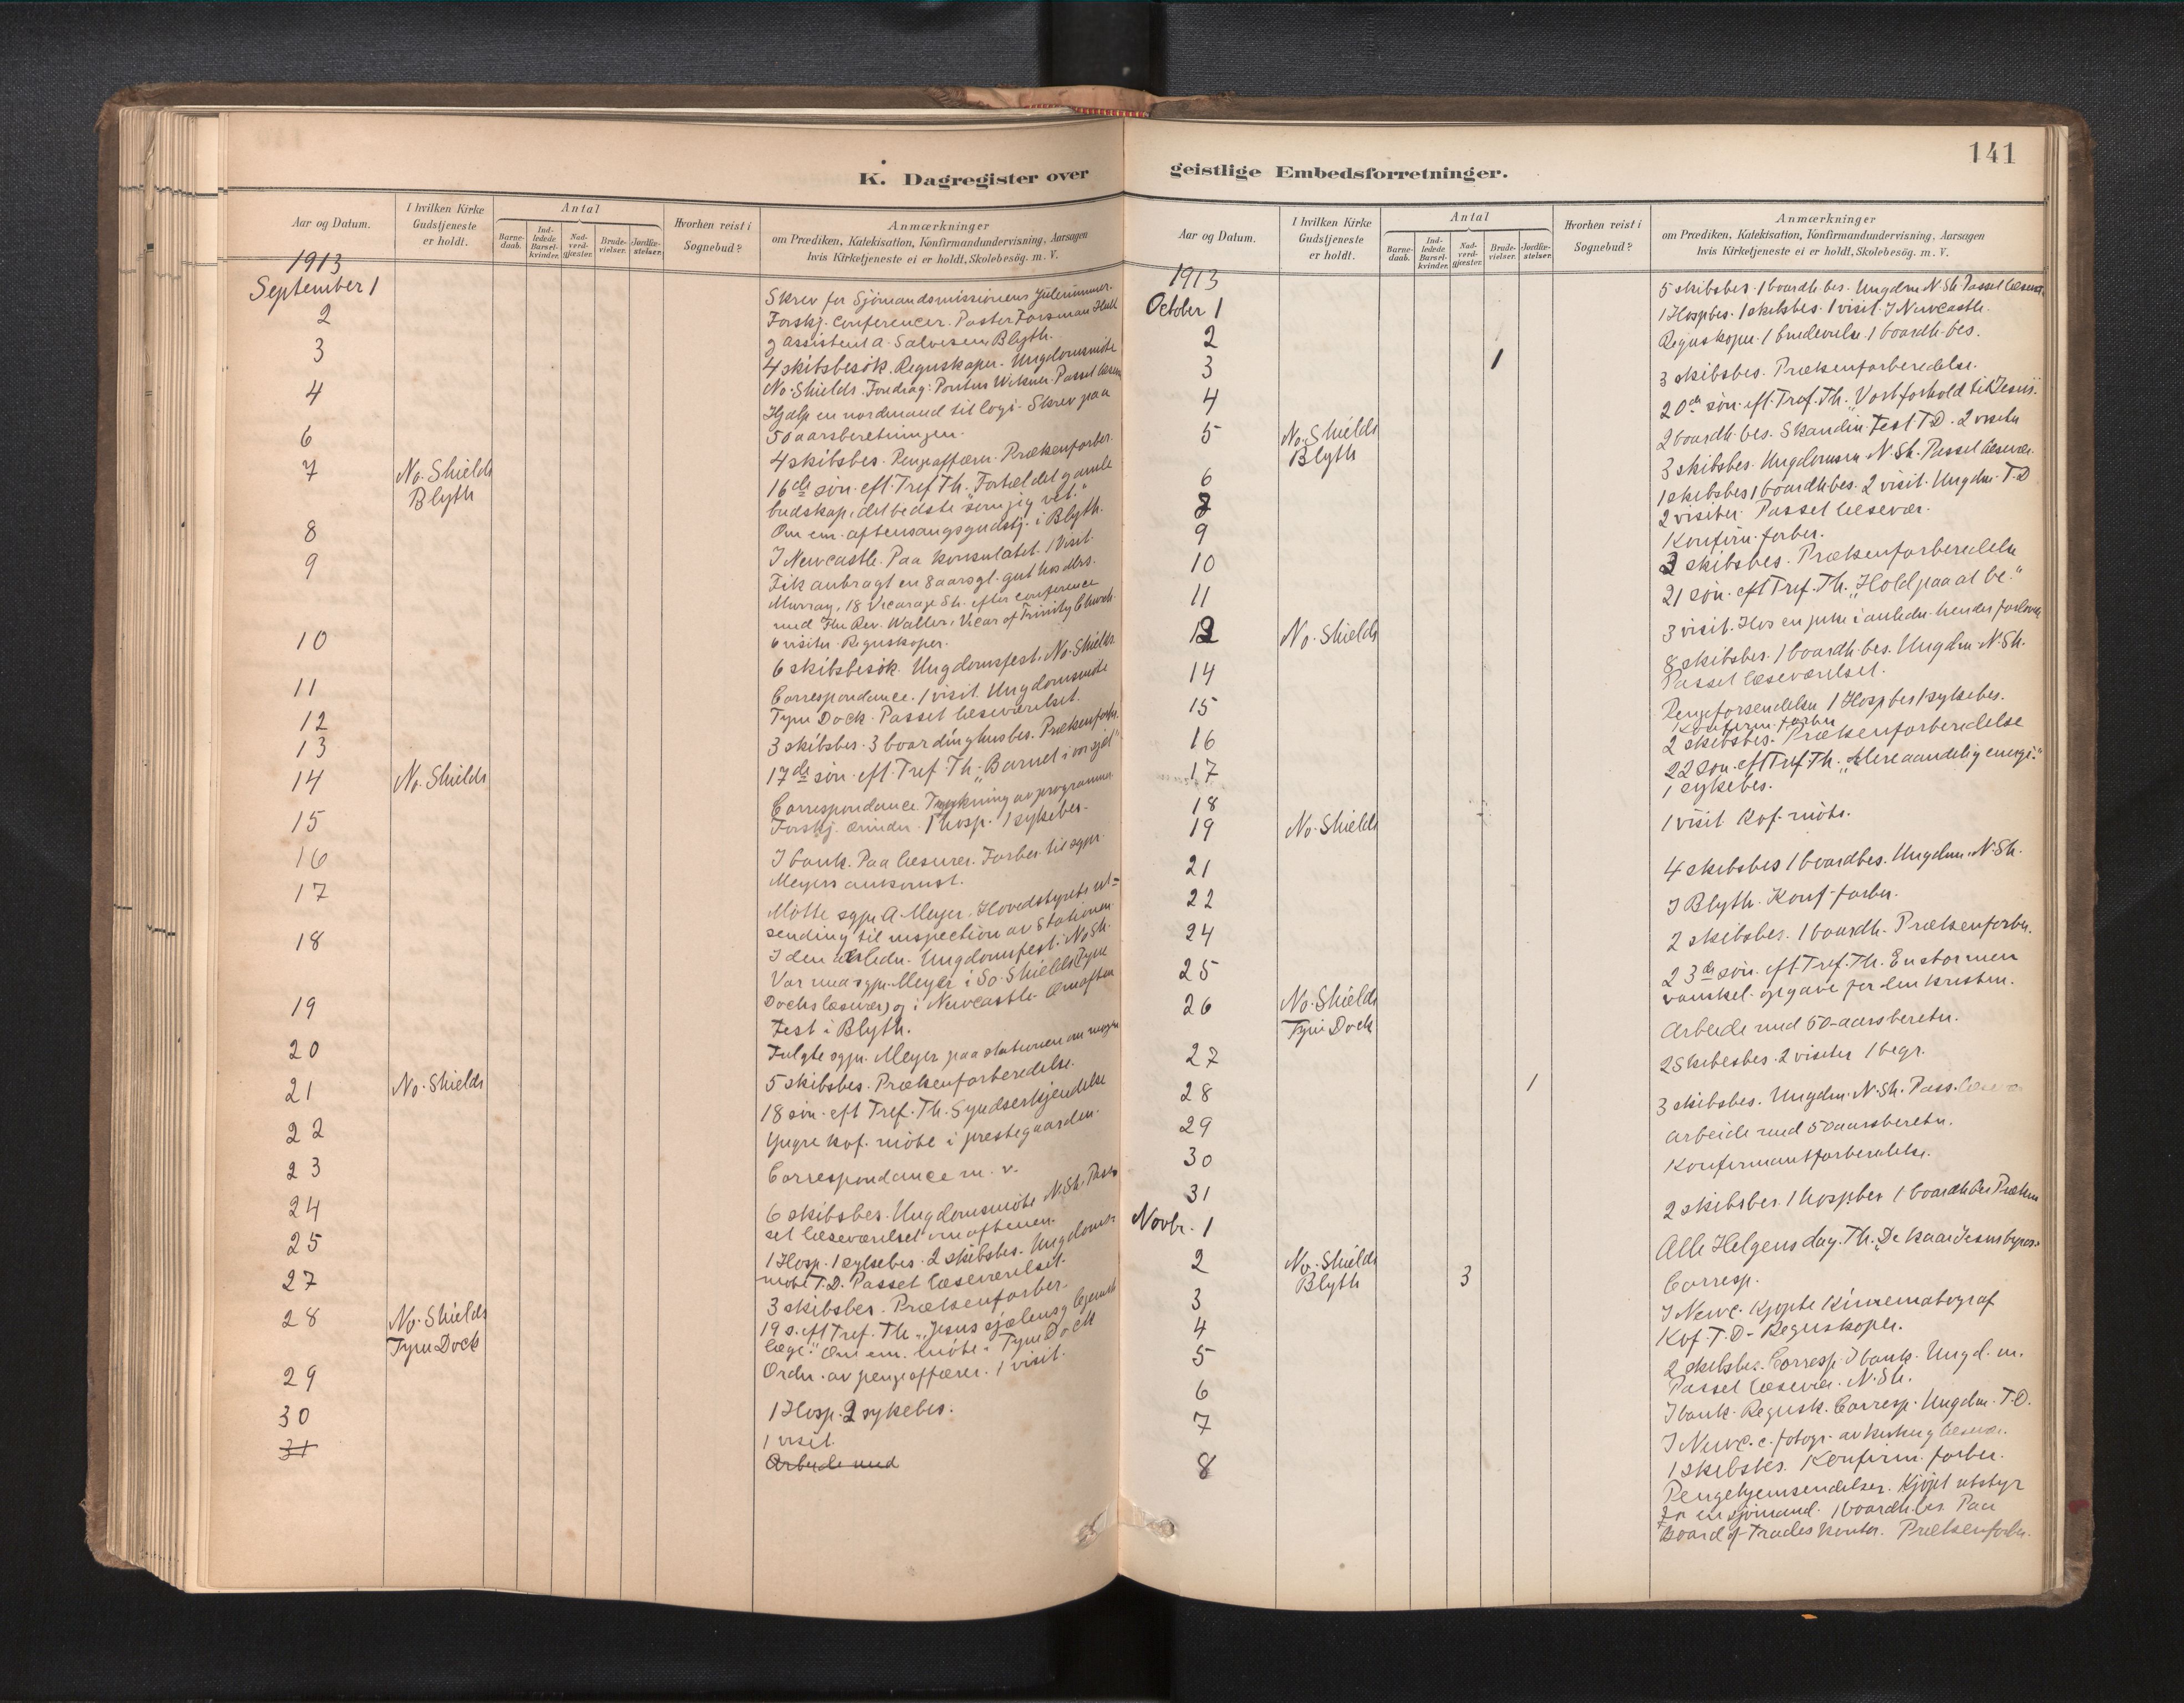 K. Dagregister over
Aar og Datum.
I hvilken Kirke Gudstjeneste er holdt.
Antal
Barnedaab.
Indledede Barselkvinder.
Nadverdgjæster.
Brudevielser.
Jordfæstelser.
Hvorhen reist i Sognebud?
Anmærkninger
om Prædiken, Katekisation, Konfirmandundervisning, Aarsagen
hvis Kirketjeneste ei er holdt, Skolebesög. m. V.
1913
September 1
Skrev for Sjömandsmissionens Julenummer.
2
Forskj. Conferencer. Pastor Forsman Hull
g assistent A. Salvesen, Blyth.
3
4 skibsbesök. Regnskaper. Ungdomsmöte
No. Shields. Foredrag: Pontus Wikner. Passet læsevær
4
Hjalp en nordmand til logi. Skrev paa
50 aarsberetningen.
6
4 skibsbes. Pengeaffærer. Prækenforber.
7 No. Shields
Blyth
16de søn. eft. Tref. Th. "Fortæl det gamle
budskap, det bedste som jeg vet."
Om em. aftensangsgudstj. i Blyth.
8
I Newcastle. Paa konsulatet. 1 Visit.
9
Fik anbragt en 8 aars gl. gut hos Mrs.
Murray, 18 Vicarage St. efter conference
med The Rev. Waller, Vicar of Trinity Church.
10
6 visiter. Regnskaper.
6 skibsbesök. Ungdomsfest. No. Shields
11
Correspondance. 1 visit. Ungdomsmöte
Tyne Dock. Passet læseværelset.
12
13
3 skibsbes. 3 boardinghusbes. Prækenforb.
14 No. Shields
17de søn. eft. Tref. Th. "Barnet i vor sjæl"
15
Correspondance. Trykning av programmer.
Forskj. ærinder. 1 hosp. 1 sykebes.
16
I bank. Paa læsevær. Forber. til sgpr.
Meyers ankomst.
17
Mötte sgpr. A. Meyer, Hovedstyrets ut=
sending til inspection av Stationen.
18
I den anledn. Ungdomsfest i No. Sh.
Var med sgpr. Meyer i So. Shields (Tyne
19
Docks læsevær) og i Newcastle. Om aften
Fest i Blyth.
20
Fulgte sgpr. Meyer paa stationen om morgen
5 skibsbes. Prækenforberedelse.
21 No. Shields
18 søn. eft. Tref. Th. Syndserkjendelse
22
Yngre kof. möte i prestegaarden.
23
Correspondance m. v.
24
6 skibsbes. Ungdomsmöte N. Sh. Pas
set læseværelset om aftenen.
25
1 Hosp. 1 sykebes. 2 skibsbes. Ungdoms-
möte T. D. Passet læseværelset.
27
3 skibsbes. Prækenforber.
28 No. Shields
Tyne Dock
19 s. eft Tref. Th. "Jesus sjælens g legemets
læge." Om em. möte i Tyne Dock
29
Ordn. av pengeaffærer. 1 visit.
30
1 Hosp. 2 sykebes.
1 visit.
31
Arbeide med
141
geistlige Embedsforretninger.
Aar og Datum.
I hvilken Kirke Gudstjeneste er holdt.
Antal
Barnedaab.
Indledede Barselkvinder.
Nadverdgjæster.
Brudevielser.
Jordfæstelser.
Hvorhen reist i Sognebud?
Anmærkninger
om Prædiken, Katekisation, Konfirmandundervisning, Aarsagen
hvis Kirketjeneste ei er holdt, Skolebesög. m. V.
1913
October 1
5 skibsbes. 1 boardh. bes. Ungdm N. Sh. Passet læsevær.
1 Hospbes. 1 skibsbes. 1 visit. I Newcastle.
2
Regnskaper. 1 brudevielse. 1 boardh. bes.
3 1
3 skibsbes. Prækenforberedelse.
4
20de søn. eft. Tref. Th. "Vort forhold til Jesus".
5 No. Shields
Blyth
2 boardh. bes. Skandin. Fest T. D. 2 visiter
3 skibsbes. Ungdomsm. N. Sh. Passet læsevær.
6
1 skibsbes 1 boardhbes. 2 visit. Ungdm. T. D
8
2 visiter. Passet læsevær.
9
Konfirm. forber.
10
3 skibsbes. Prækenforberedelse
11
21 søn. eft Tref. Th. "Hold paa at be."
12 No. Shields
8 skibsbes. 1 boardh. bes. Ungdm N. Sh.
Passet læseværelset.
14
15
Pengeforsendelse 1 Hospbes 1 sykebes.
Konfirm. forber
16
2 skibsbes. Prækenforberedelse
17
22 søn. eft Tref. Th. "Mere aandelig energi."
1 sykebes.
18
1 visit Kof. möte.
19 No. Shields
21
4 skibsbes 1 boardbes. Ungdm. N. Sh.
22
I Blyth. Konf. forber.
24
2 skibsbes. 1 boardh. Prækenforber.
25
23de søn. eft. Tref. Th. En stor men
vanskel. opgave for den kristen.
26 No. Shields
Tyne Dock
Arbeide med 50-aarsberetn.
27
2 Skibesbes. 2 visiter 1 begr.
28 1
3 skibsbes. Ungdm. N. Sh. Pass. læsevær
29
Arbeide med 50 aarsberetn.
30
Konfirmantforberedelse.
31
2 skibsbes. 1 hospbes 1 boardhbes Præken
Novbr. 1
Alle Helgens dag. Th. "De kaar Jesus byr os."
2 No. Shields
Blyth 3
Corresp.
3
I Newc. Kjøpte Kinematograf
4
Kof. T. D. Regnskaper.
5
2 skibsbes. Corresp. I bank. Ungd. m.
Passet læsevær. N. Sh.
6
I bank. Regnsk. Corresp. Ungdm. T. D.
7
I Newc. c. fotogr. av kirke og læsevær.
1 skibsbes. Konfirm. forber.
8
Pengehjemsendelser. Kjøpt utstyr
for en sjömand. 1 boardh. bes. Paa
Board of Trades kontor. Prækenforber.